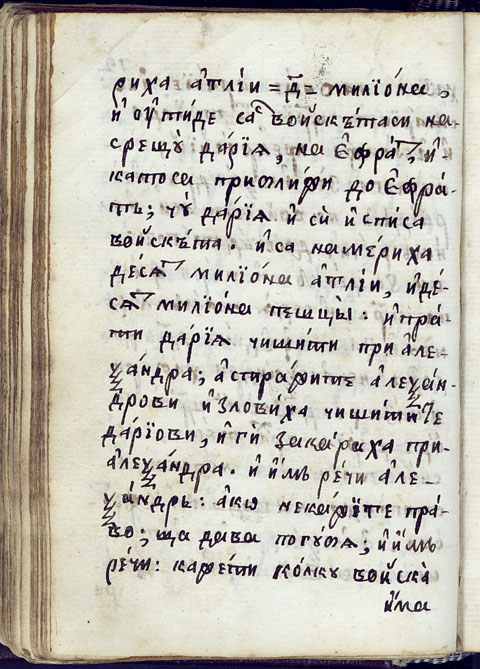 риха а҆тлі́и = д҃ = милїо́на,
и҆ ѹ҆ти́де саⷭ҇ войскѣ́таси на-
срещꙋ̀ да́рїѧ, на Е҆фра́ⷮ, и҆-
катоса приближи до Е҆фра́-
тъ; чꙋ̀ да́рїѧ и҆ сѝ и҆спи́са
войскѣ́та. и҆ са намѣриха
де́сѧⷮ милїо́на а҆тлі́и, и҆ де́-
сѧⷮ милїо́на пешцы̀. и҆ пра́-
ти да́рїѧ чиши́ти при а҆ле-
ѯа́ндра; а҆стиражите а҆леѯа́н-
дрови и҆злови́ха чиши́тите
да́рїови, и҆ гѝ зака́риха при-
а҆леѯа́ндра. и҆ и҆́мъ ре́чи а҆ле-
ѯа́ндръ: а҆кѡ нека́жїте пра́-
во; ща два погꙋбѧ; и҆ и҆́мъ
ре́чи: каже́ти ко́лкꙋ войска̀
и҆́ма